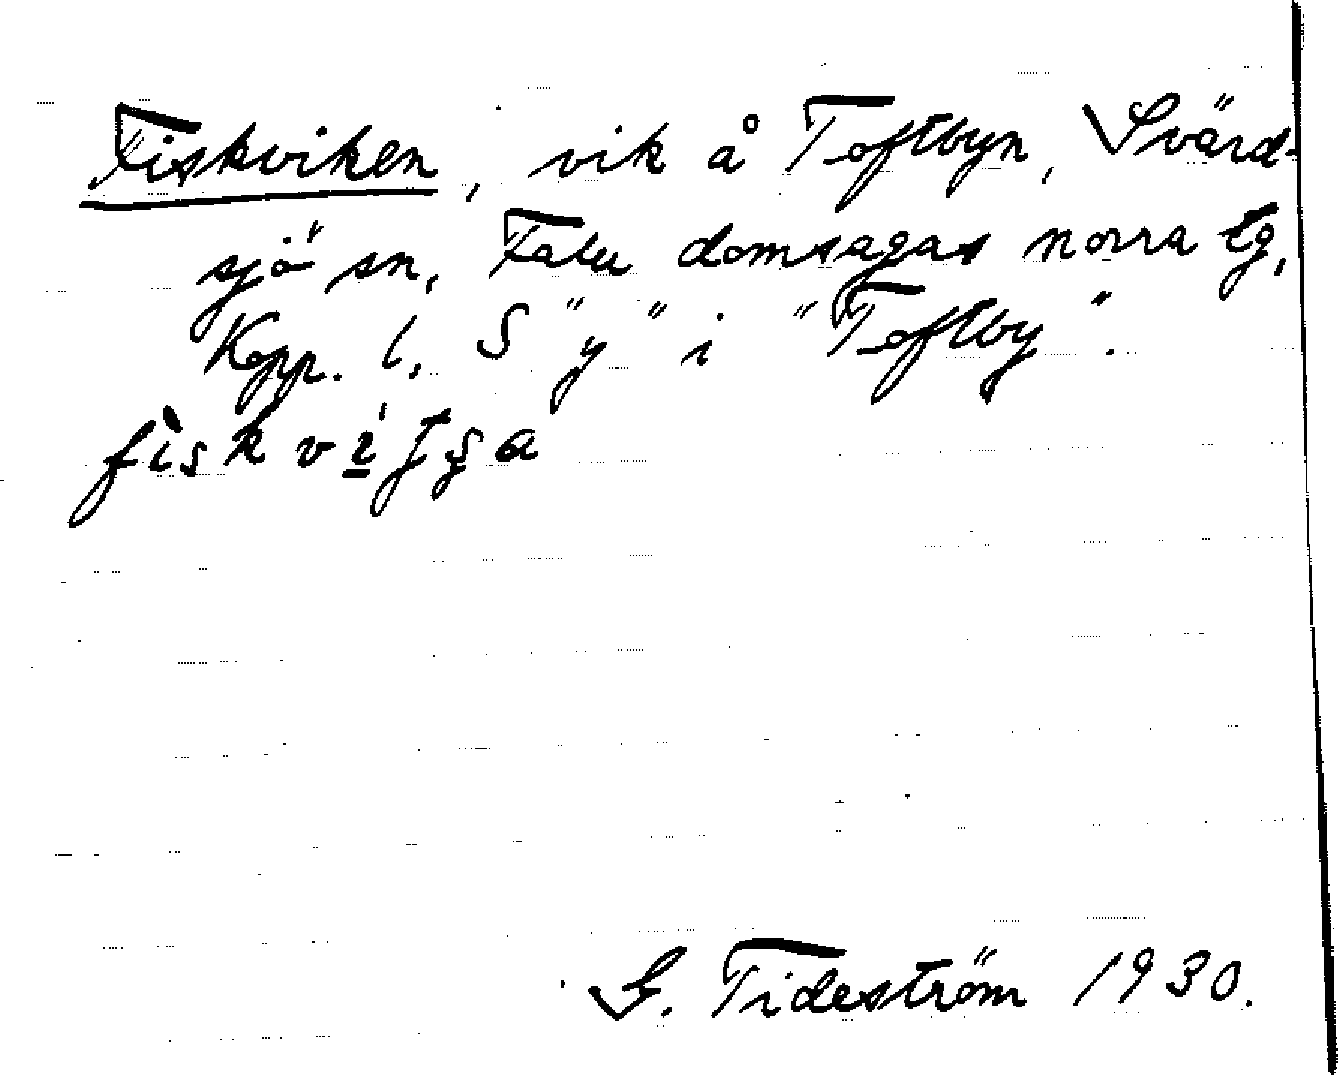 Fiskviken, vik å Toftbyn, Svärd-
sjö sn, Falu domsagas norra tg,
Kopp. l. S "y" i "Toftby".
G. Tideström 1930.